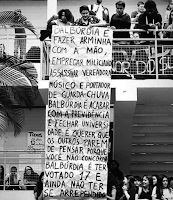 BALBÚRDIA É
FAZER ARMINHA
COM A MÃO,
EMPREGAR MILICIANO
ASSASSINAR VEREADORA
MÚSICO E PORTADOR
DE GUARDA-CHUVA
BALBÚRDIA É ACABAR
COM A PREVIDÊNCIA
E FECHAR UNIVERSI
DADE E QUERER QUE
OS OUTROS PAREM
DE PENSAR PORQUE
VOCÊ NÃO CONCORDA
BALBÚRDIA É TER
VOTADO 17 E
AINDA NÃO TER
SE ARREPENDIDO